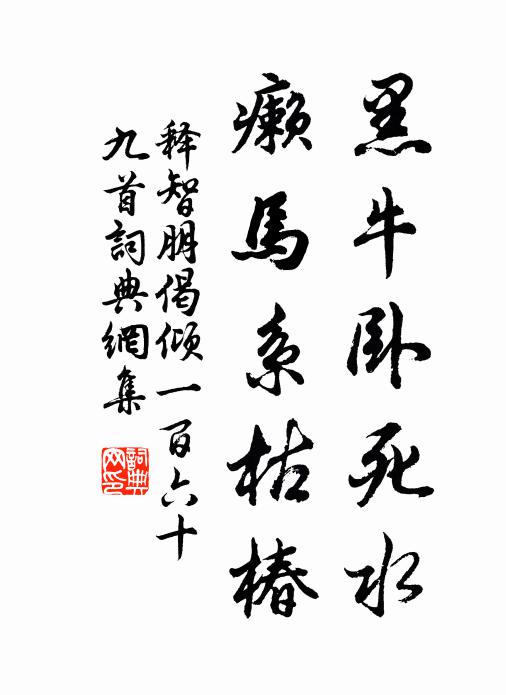 黑牛卧死水
癩馬系枯椿
释智朋偈傾一百六十
九首詞典網集
詞典
网印